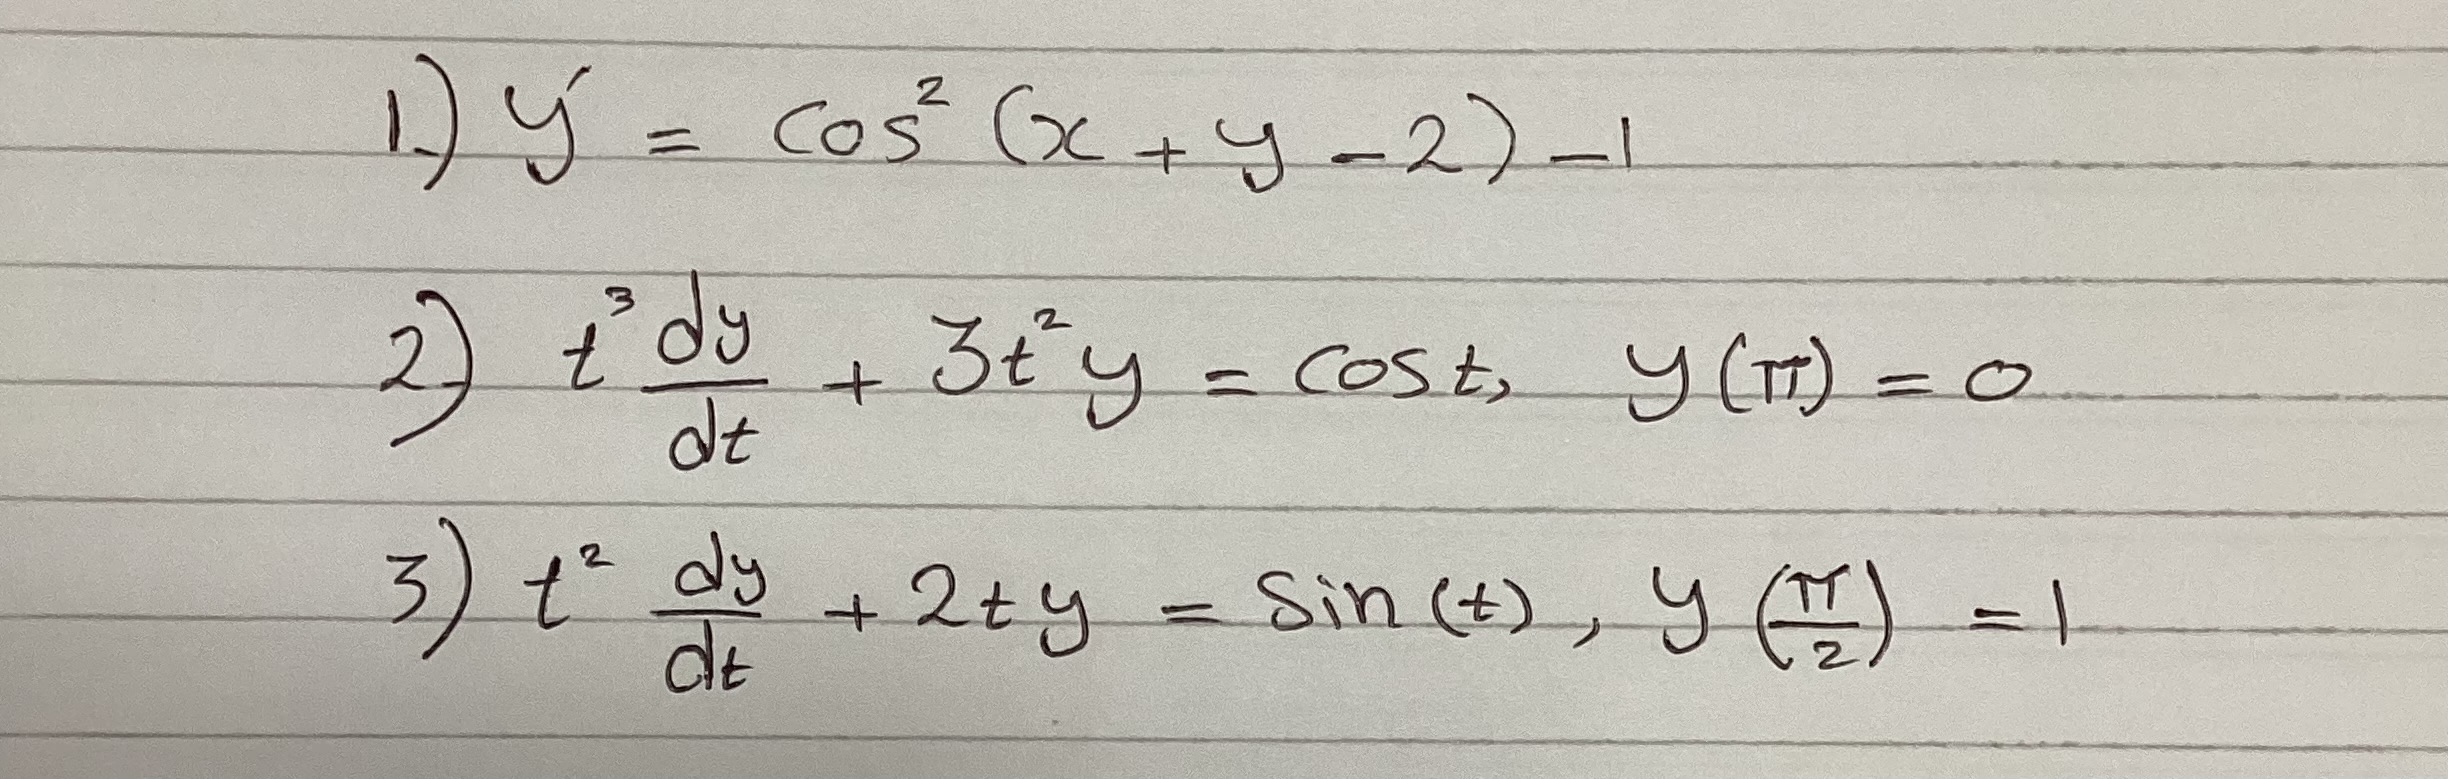 1.) y' = cos² (x + y - 2) - 1
2) t³ dy/dt + 3t² y = cos t, y(π) = 0
3) t² dy/dt + 2ty = Sin(t), y(π/2) = 1